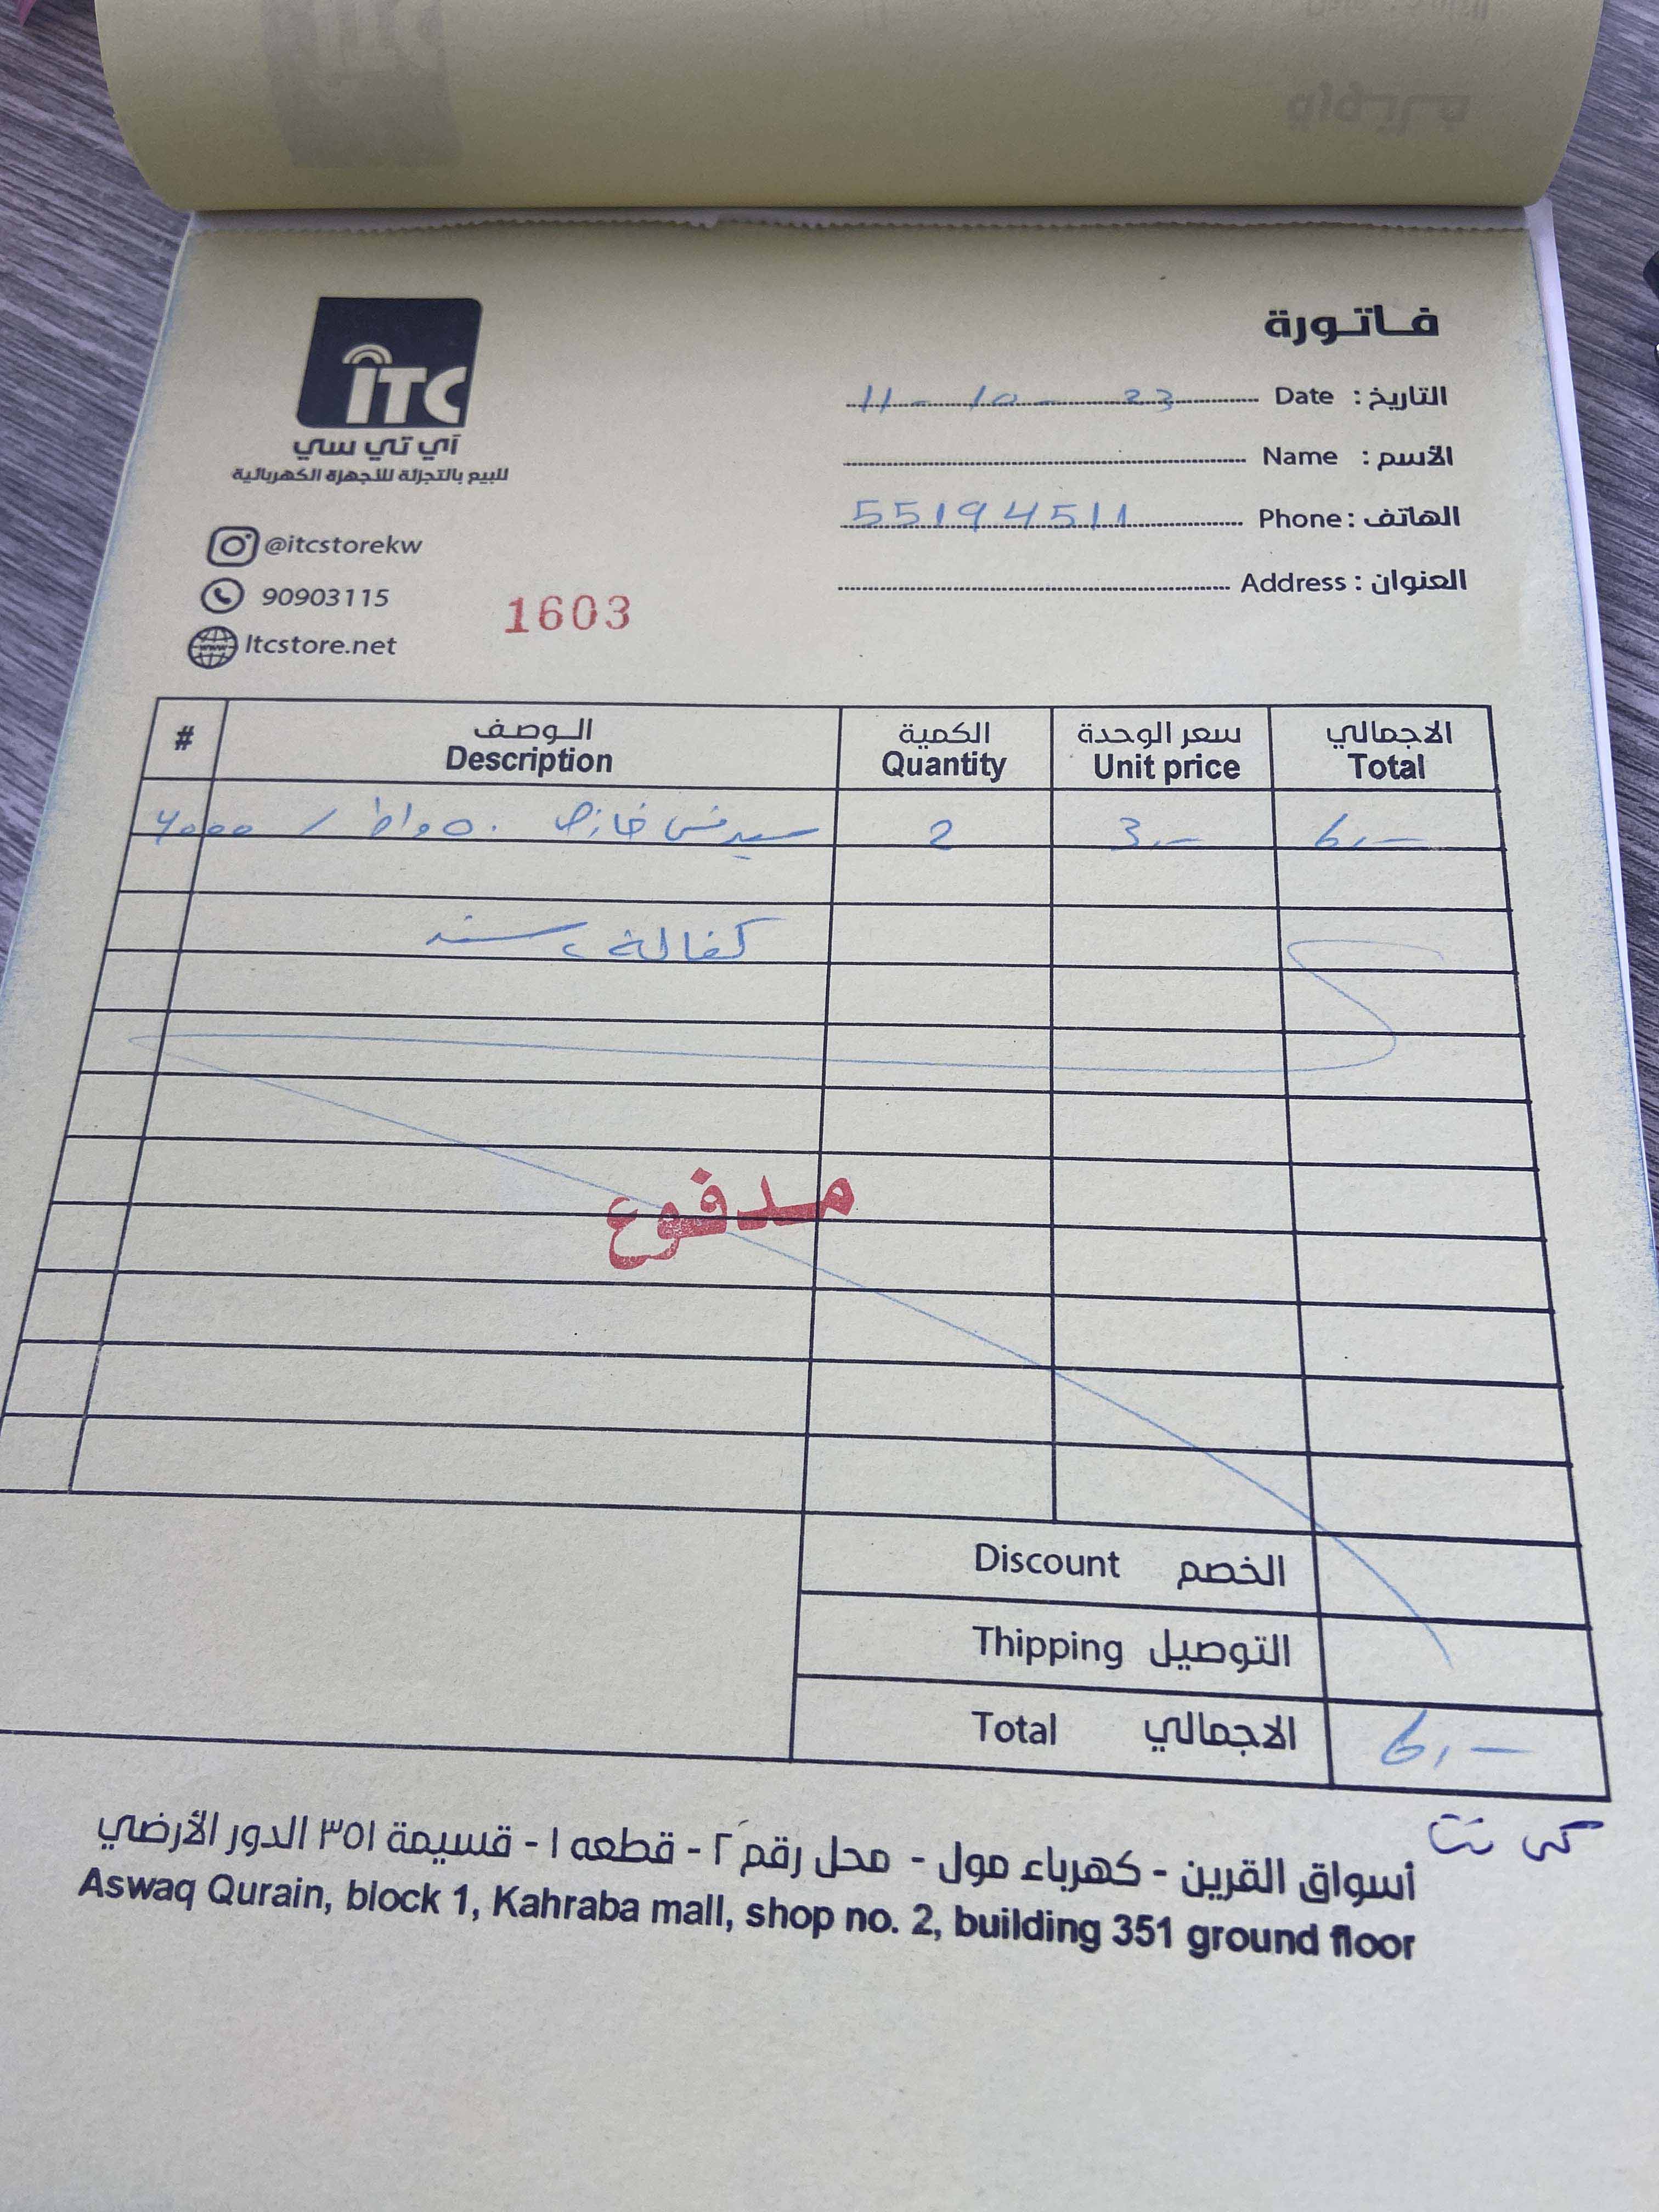 ITC
آي تي سي
للبيع بالتجزئة للأجهزة الكهربائية
@itcstorekw
90903115
Itcstore.net
1603
فاتورة
التاريخ : Date 11 - 10 - 23
الأسم : Name
الهاتف : Phone 55194511
العنوان : Address
# الوصف الكمية سعر الوحدة الاجمالي
Description Quantity Unit price Total
٥٠ واط / 2 3,- 6,-
كفالة سنه
مدفوع
Discount الخصم
Thipping التوصيل
Total الاجمالي 6,-
كي نت
أسواق القرين - كهرباء مول - محل رقم ٢ - قطعه ١ - قسيمة ٣٥١ الدور الأرضي
Aswaq Qurain, block 1, Kahraba mall, shop no. 2, building 351 ground floor